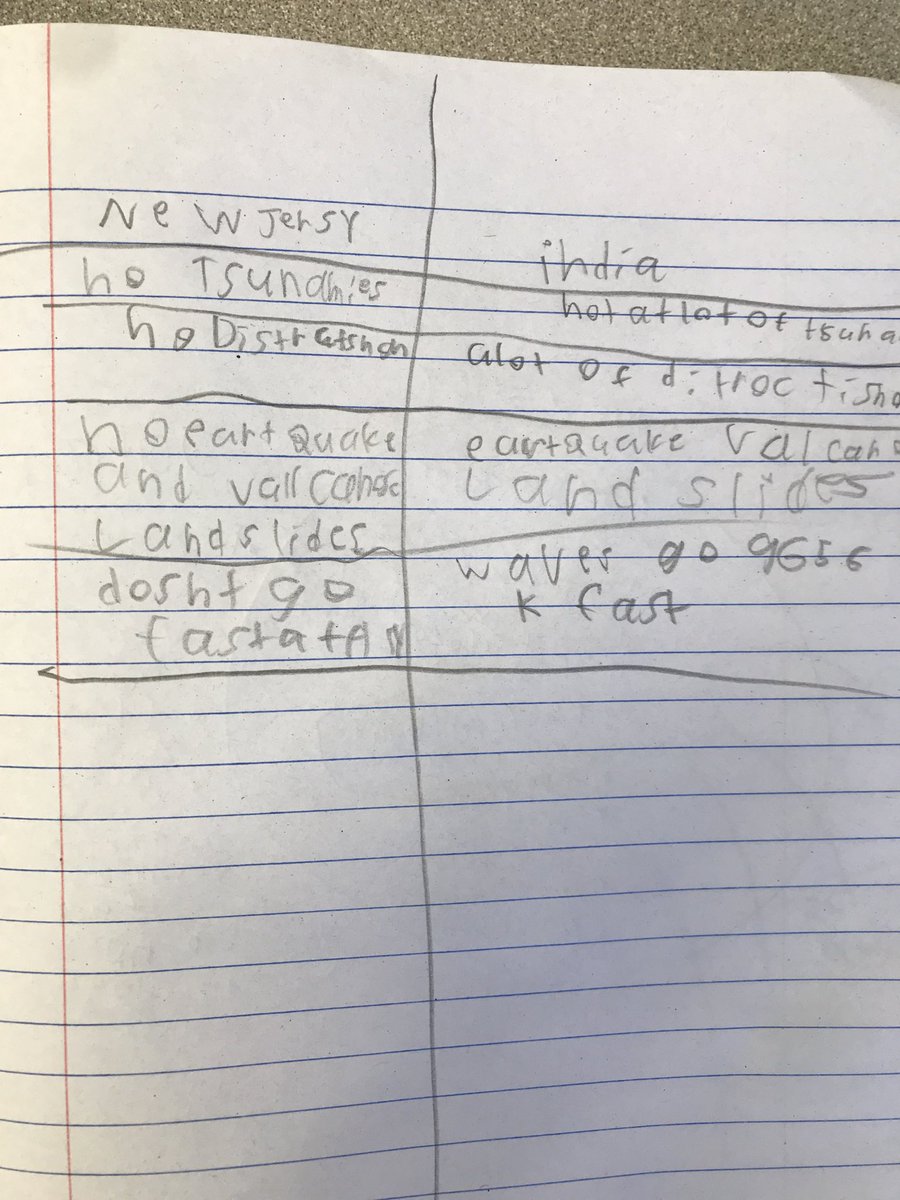 New Jersy
india
no Tsunamies
not at lot of tsuna
no Distratshon
alot of ditroctisho
no eartquake
and vallconoc
Landslides
eartquake valcano
Land slides
dosnt go
fast at All
waves go 9656
K fast